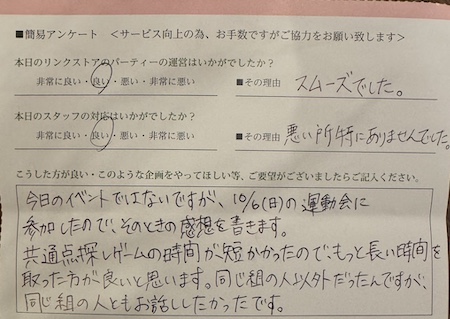 ■簡易アンケート <サービス向上の為、お手数ですがご協力をお願い致します>
本日のリンクストアのパーティーの運営はいかがでしたか?
非常に良い・良い・悪い・非常に悪い ■その理由 スムーズでした。
本日のスタッフの対応はいかがでしたか?
非常に良い・良い・悪い・非常に悪い ■その理由 悪い所特にありませんでした。
こうした方が良い・このような企画をやってほしい等、ご要望がございましたらご記入ください。
今日のイベントではないですが、10/6(日)の運動会に
参加したので、そのときの感想を書きます。
共通点探しゲームの時間が短かかったので、もっと長い時間を
取った方が良いと思います。同じ組の人以外だったんですが、
同じ組の人ともお話ししたかったです。